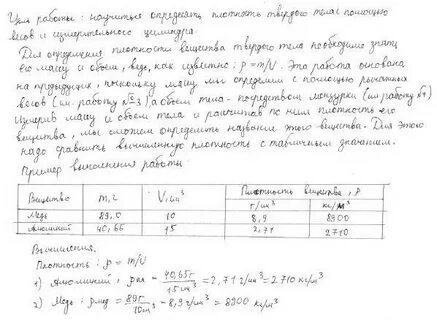 Цель работы: научиться определять плотность твердого тела с помощью
весов и измерительного цилиндра.
Для определения плотности вещества твердого тела необходимо знать
его массу и объем, ведь, как известно: ρ = m/V. Эта работа основана
на предыдущих, поскольку массу мы определим с помощью рычажных
весов (см. работу №3), а объем тела - посредством мензурки (см работу №4)
Измерив массу и объем тела и рассчитав по ним плотность его
вещества, мы сможем определить название этого вещества. Для этого
надо сравнить вычисленную плотность с табличным значением.
Пример выполнения работы:
Вещество m, г V, см³ Плотность вещества, ρ
г/см³ кг/м³
Медь 89,0 10 8,9 8900
Алюминий 40,66 15 2,71 2710
Вычисления.
Плотность: ρ = m/V
1) Алюминий: ρал = 40,65г/15см³ = 2,71 г/см³ = 2710 кг/м³
2) Медь: ρмед = 89г/10см³ = 8,9 г/см³ = 8900 кг/м³